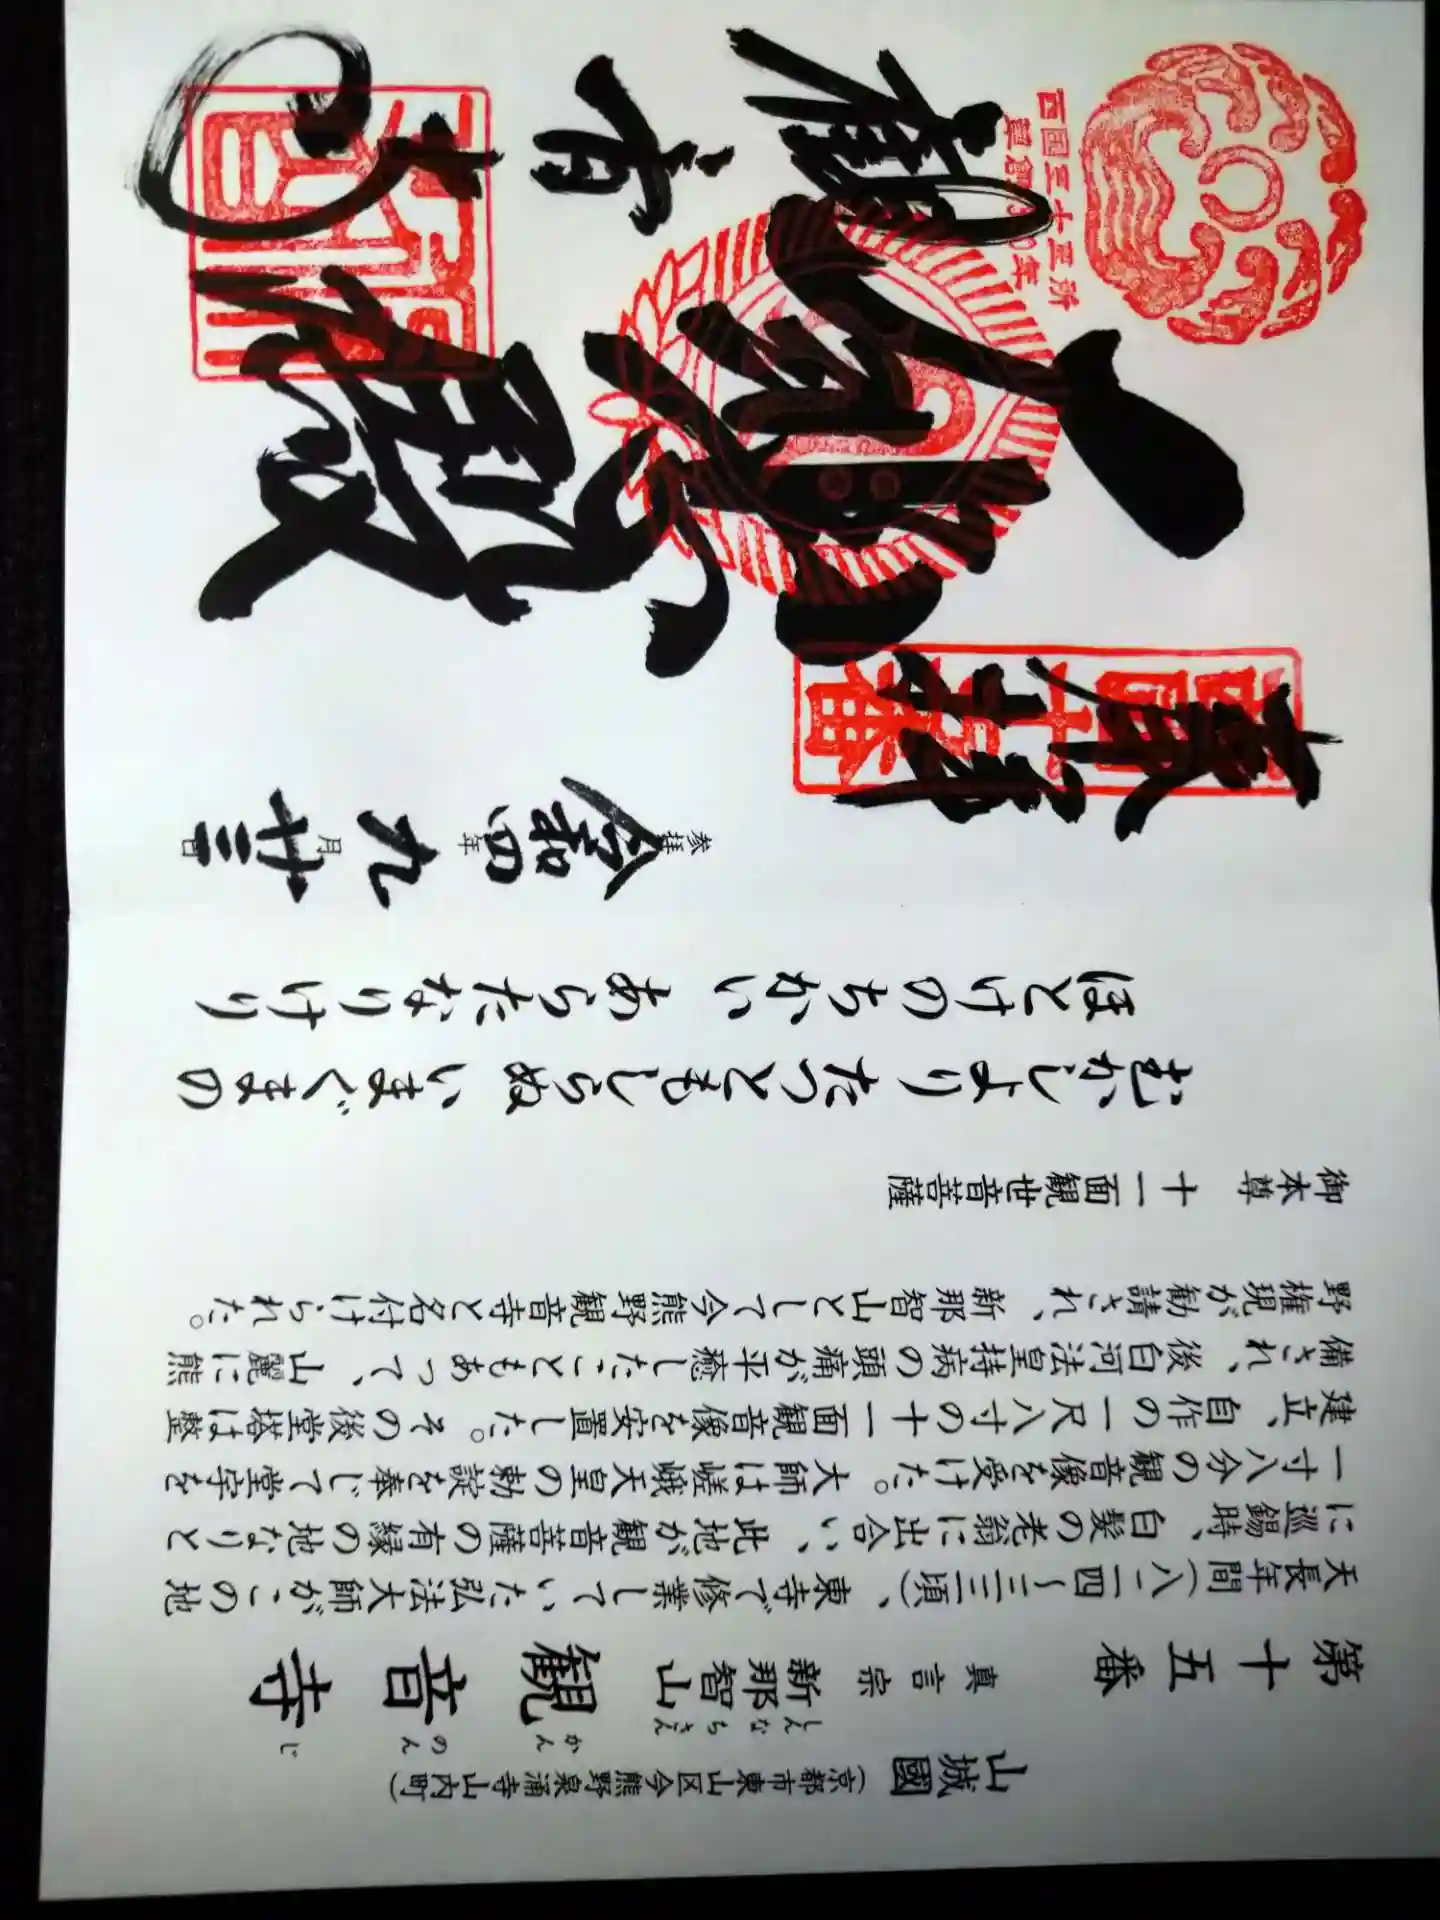 山城國(京都市東山区今熊野泉涌寺山内町)
第十五番 真言宗 新那智山 観音寺
しんなちさん かんのんじ
天長年間(八二四〜三三頃)、東寺で修業していた弘法大師がこの地
に巡錫時、白髪の老翁に出合い、此地が観音菩薩の有縁の地なりと
一寸八分の観音像を受けた。大師は嵯峨天皇の勅詔を奉じて堂宇を
建立、自作の一尺八寸の十一面観音像を安置した。その後堂塔は整
備され、後白河法皇持病の頭痛が平癒したこともあって、山麓に熊
野権現が勧請され、新那智山として今熊野観音寺と名付けられた。
御本尊 十一面観世音菩薩
むかしより たつともしらぬ いまぐまの
ほとけのちかい あらたなりけり
参拝 令和四年九月廿三日
西國十五番
西国三十三所
草創1300年
観音寺